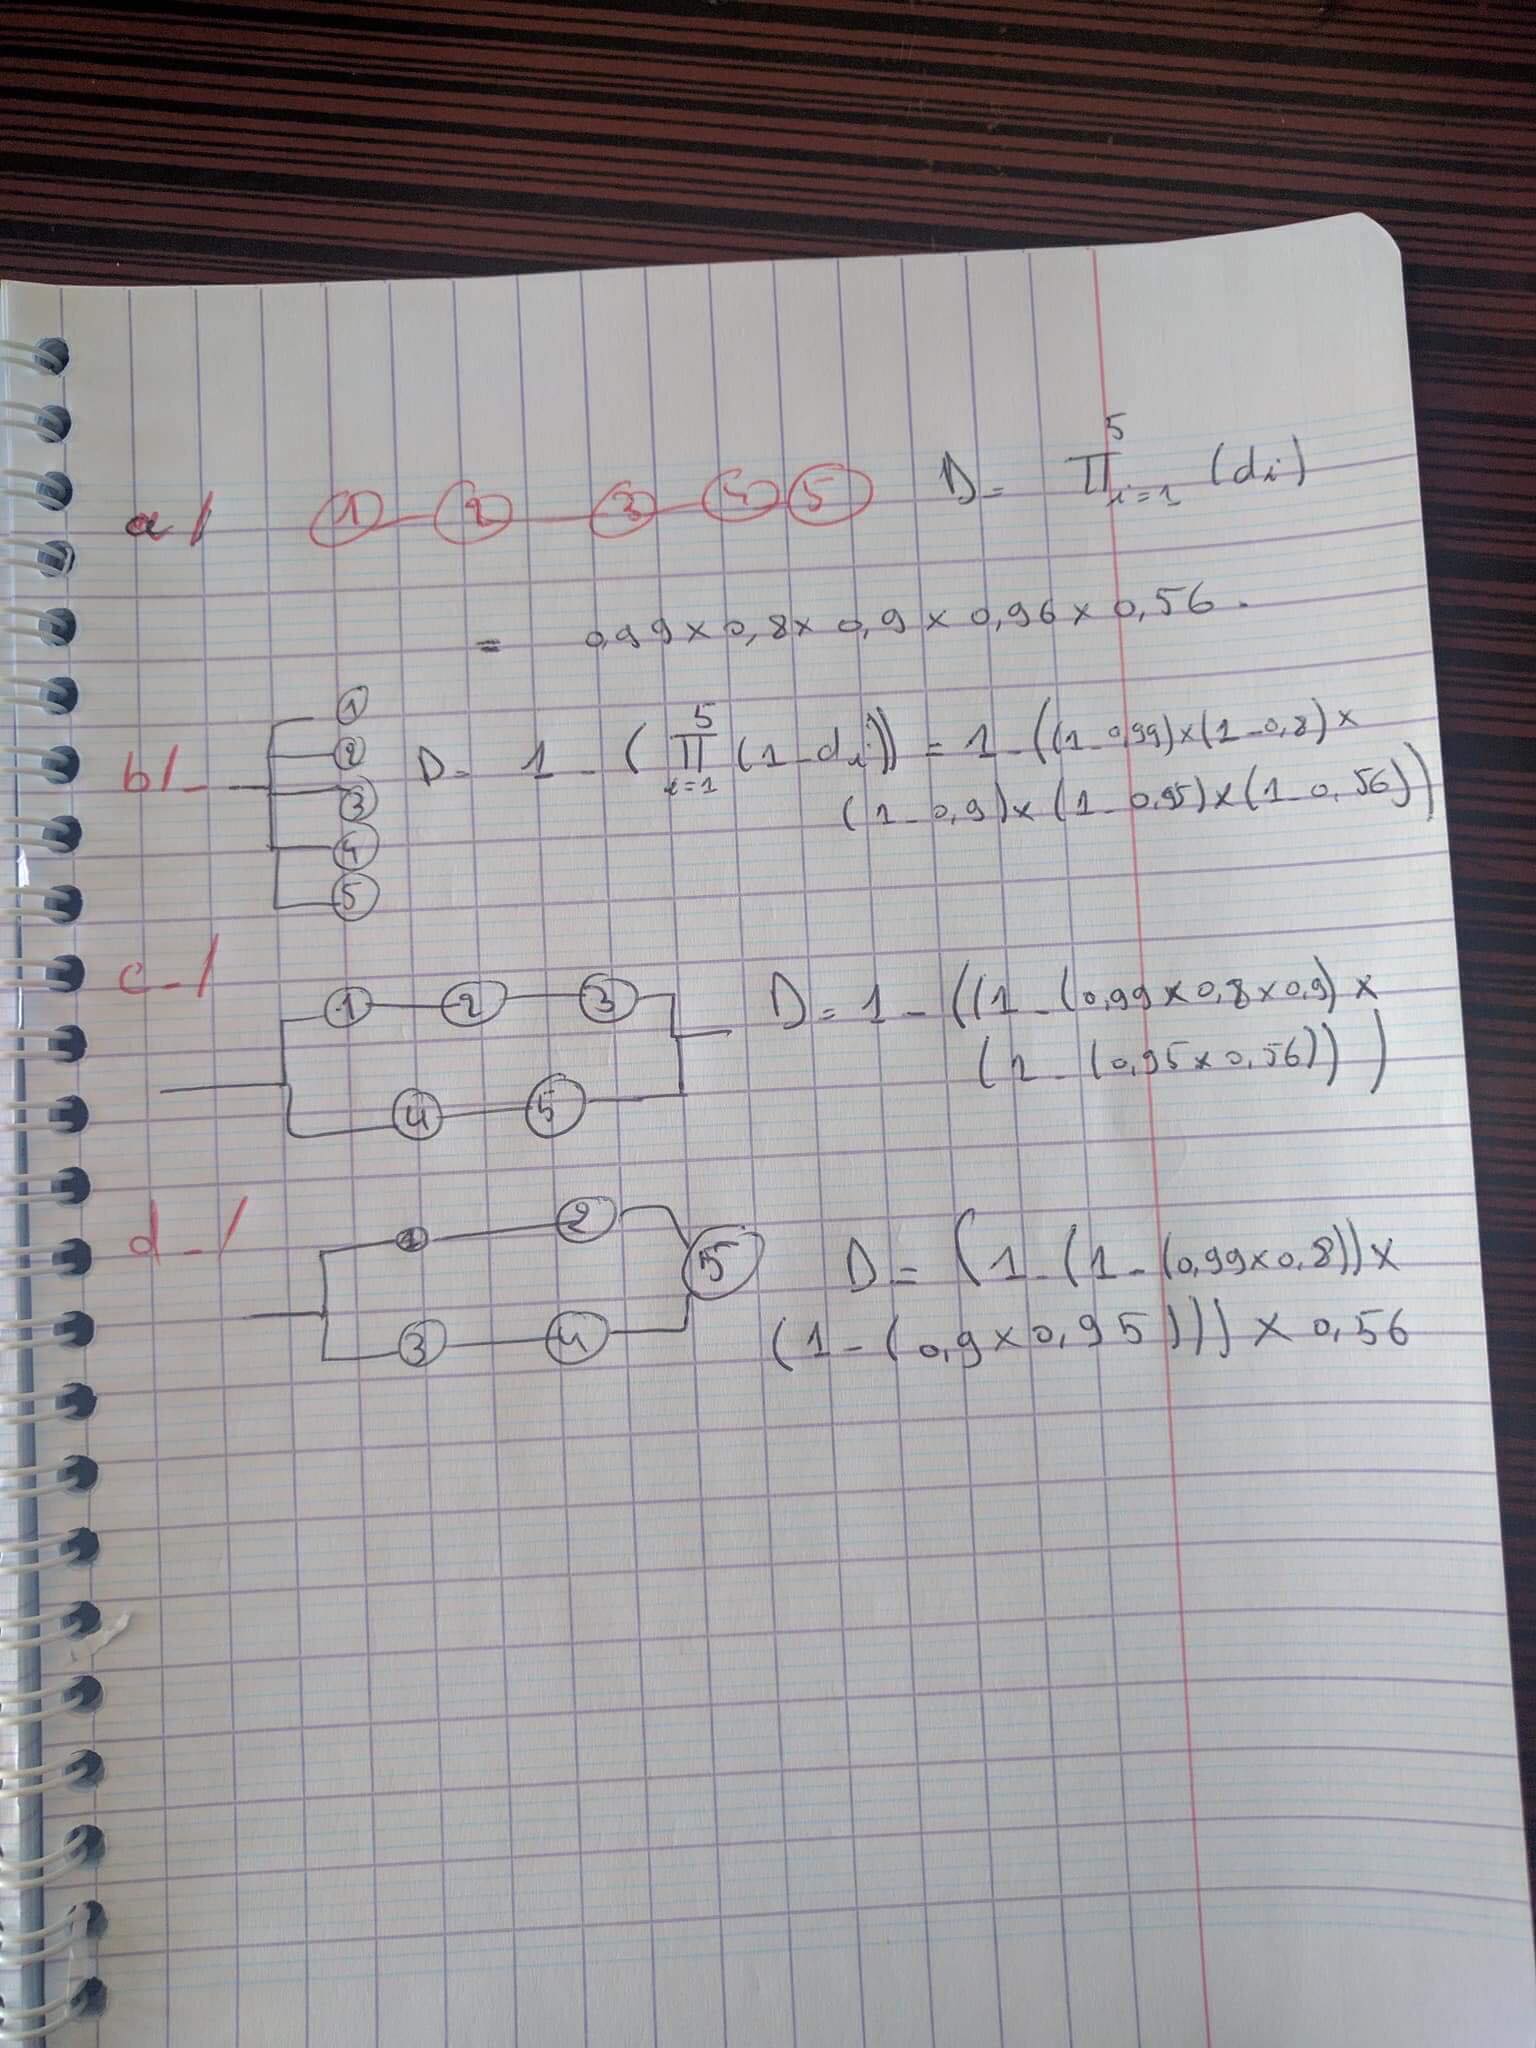 a/ 1 2 3 4 5 D = 5 ∏ i=1 (di)
= 0,99 x 0,8 x 0,9 x 0,96 x 0,56.
b/_ 1 2 3 4 5 D = 1 - ( 5 ∏ i=1 (1-di)) = 1 - ((1-0,99)x(1-0,8)x
(1-0,9)x(1-0,95)x(1-0,56))
c_/ 1 2 3 4 5 D = 1 - ((1-(0,99x0,8x0,9)x
(1-(0,95x0,56)))
d_/ 1 2 3 4 5 D = (1-(1-(0,99x0,8))x
(1-(0,9x0,95))) x 0,56